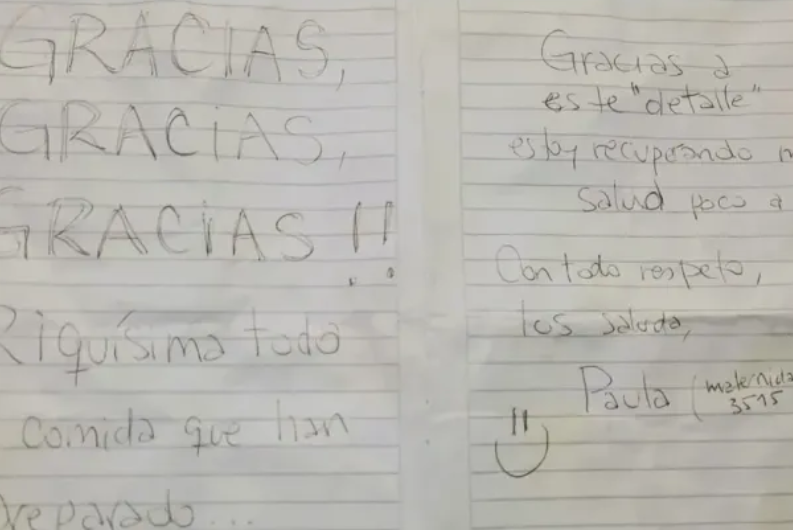 GRACIAS,
GRACIAS,
GRACIAS !!
Riquísima toda
comida que han
preparado...
Gracias a
este "detalle"
estoy recuperando m
salud poco a
Con todo respeto,
los saluda,
Paula (maternida
3515